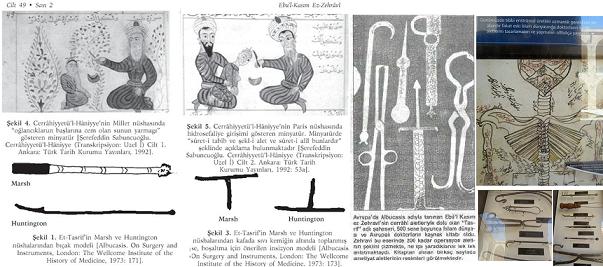 Cilt 49 • Sayı 2
Ebu'l-Kasım Ez-Zehrâvî
Şekil 4. Cerrâhiyyetü'l-Hâniyye'nin Millet nüshasında
"oğlancıkların başlarına cem olan sunun yarmağı"
gösteren minyatür [Şerefeddin Sabuncuoğlu.
Cerrâhiyyetü'l-Hâniyye (Transkripsiyon: Uzel İ) Cilt 1.
Ankara: Türk Tarih Kurumu Yayınları, 1992].
Marsh
Huntington
Şekil 1. Et-Tasrif'in Marsh ve Huntington
nüshalarından bıçak modeli [Albucasis. On Surgery and
Instruments, London: The Wellcome Institute of the
History of Medicine, 1973: 171].
Şekil 5. Cerrâhiyyetü'l-Hâniyye'nin Paris nüshasında
hidrosefaliye girişimi gösteren minyatür. Minyatürde
"sûret-i tabîb ve şekl-i alet ve sûret-i alîl bunlardır"
şeklinde açıklama bulunmaktadır [Şerefeddin
Sabuncuoğlu. Cerrâhiyyetü'l-Hâniyye (Transkripsiyon:
Uzel İ) Cilt 2. Ankara: Türk Tarih
Kurumu Yayınları, 1992: 53a].
Marsh
Huntington
Şekil 3. Et-Tasrif'in Marsh ve Huntington
nüshalarından kafada sıvı kemiğin altında toplanmış
ise, boşalma için önerilen insizyon modeli [Albucasis
-On Surgery and Instruments, London: The Wellcome
Institute of the History of Medicine, 1973: 173].
Avrupa'da Albucasis adıyla tanınan Ebu'l Kasım
ez Zehravi'nin cerrahi aletleriyle dolu olan "Tas-
rif" adlı şaheseri, 500 sene boyunca İslam dünya-
sı ve Avrupalı doktorların kaynak kitabı oldu.
Zehravi bu eserinde 200 kadar operasyon aleti-
nin şeklini çizmekte, ne işe yaradıklarını tek tek
anlatmaktaydı. Kitaptan alınan birkaç sayfada
ameliyat aletlerinden bazıları görülmektedir.